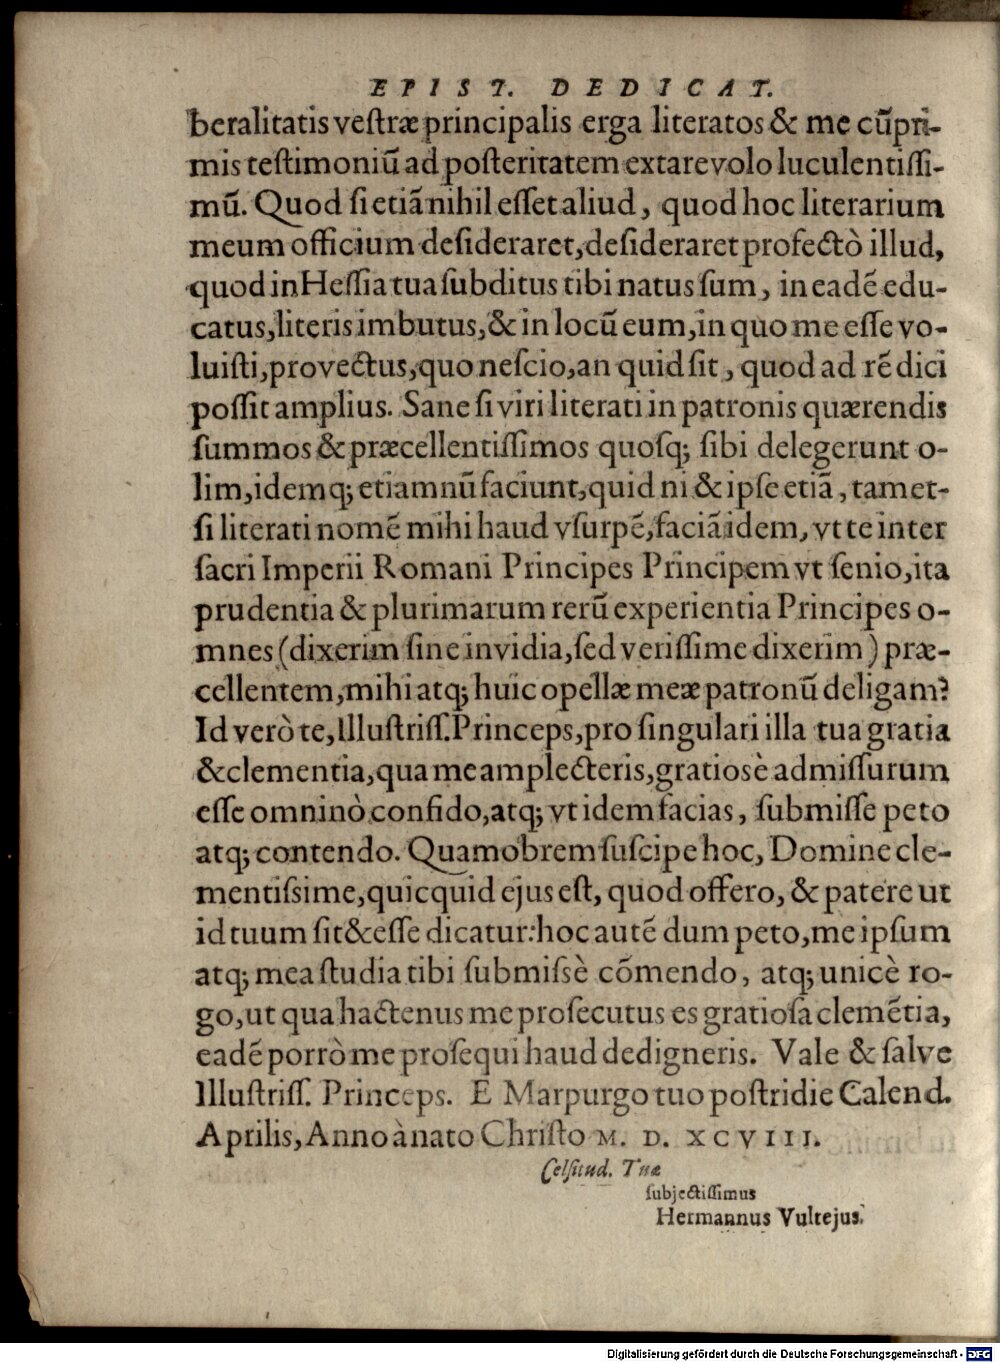 EPIST. DEDICAT.
beralitatis vestræ principalis erga literatos & me cũpri-
mis testimoniũ ad posteritatem extare volo luculentissi-
mũ. Quod si etiã nihil esset aliud, quod hoc literarium
meum officium desideraret, desideraret profectò illud,
quod in Hessia tua subditus tibi natus sum, in eadẽ edu-
catus, literis imbutus, & in locũ eum, in quo me esse vo-
luisti, provectus, quo nescio, an quid sit, quod ad rẽ dici
possit amplius. Sane si viri literati in patronis quærendis
summos & præcellentissimos quosq; sibi delegerunt o-
lim, idemq; etiamnũ faciunt, quid ni & ipse etiã, tamet-
si literati nomẽ mihi haud vsurpẽ, faciã idem, vt te inter
sacri Imperii Romani Principes Principem vt senio, ita
prudentia & plurimarum rerũ experientia Principes o-
mnes (dixerim sine invidia, sed verissime dixerim) præ-
cellentem, mihi atq; huic opellæ meæ patronũ deligam?
Id verò te, Illustriss. Princeps, pro singulari illa tua gratia
& clementia, qua me amplecteris, gratiosè admissurum
esse omninò confido, atq; vt idem facias, submisse peto
atq; contendo. Quamobrem suscipe hoc, Domine cle-
mentissime, quicquid ejus est, quod offero, & patere ut
id tuum sit & esse dicatur: hoc autẽ dum peto, me ipsum
atq; mea studia tibi submissè cõmendo, atq; unicè ro-
go, ut qua hactenus me prosecutus es gratiosa clemẽtia,
eadẽ porrò me prosequi haud dedigneris. Vale & salve
Illustriss. Princeps. E Marpurgo tuo postridie Calend.
Aprilis, Anno à nato Christo M. D. XCVIII.
Celsitud. Tuæ
subjectissimus
Hermannus Vultejus.
Digitalisierung gefördert durch die Deutsche Forschungsgemeinschaft - DFG